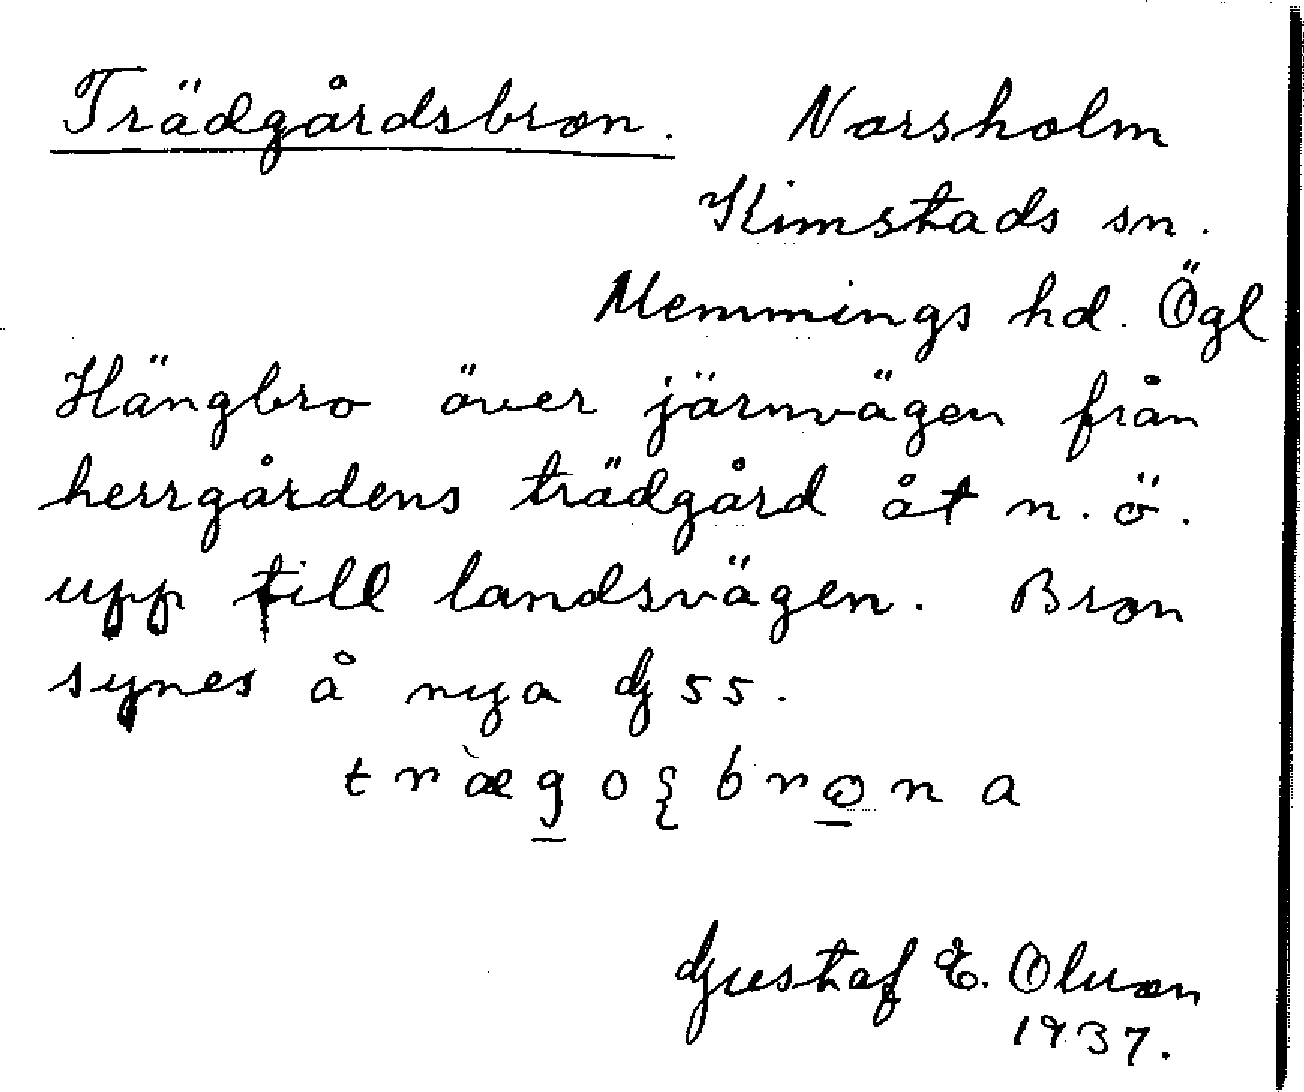 Trädgårdsbron. Norsholm
Kimstads sn.
Memmings hd. Ögl
Hängbro över järnvägen från
herrgårdens trädgård åt n.ö.
upp till landsvägen. Bron
synes å nya G 55.
træ̀go bro̲na
Gustaf E. Olsson
1937.